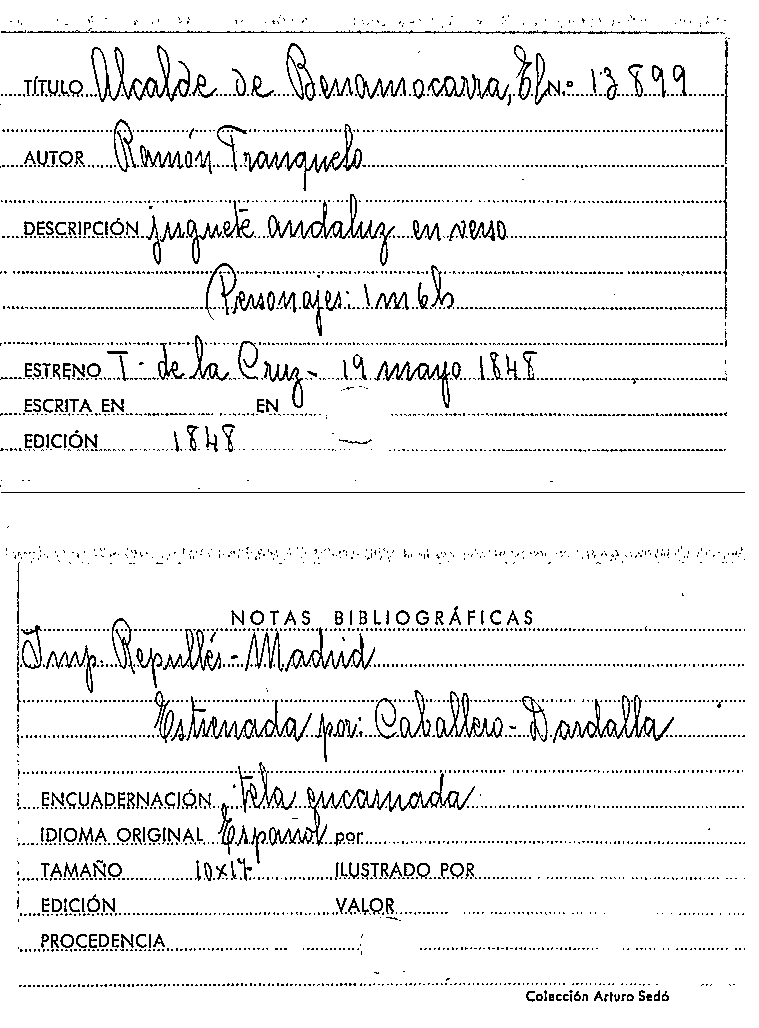 TÍTULO Alcalde de Benamocarra, El N.º 13899
AUTOR Ramón Franquelo
DESCRIPCIÓN juguete andaluz en verso
Personajes: 1m 6h
ESTRENO T. de la Cruz - 19 mayo 1848
ESCRITA EN EN
EDICIÓN 1848
NOTAS BIBLIOGRÁFICAS
Imp. Repullés - Madrid
Estrenada por: Caballero - Dardalla
ENCUADERNACIÓN tela encarnada
IDIOMA ORIGINAL Español por
TAMAÑO 10x17 ILUSTRADO POR
EDICIÓN VALOR
PROCEDENCIA
Colección Arturo Sedó